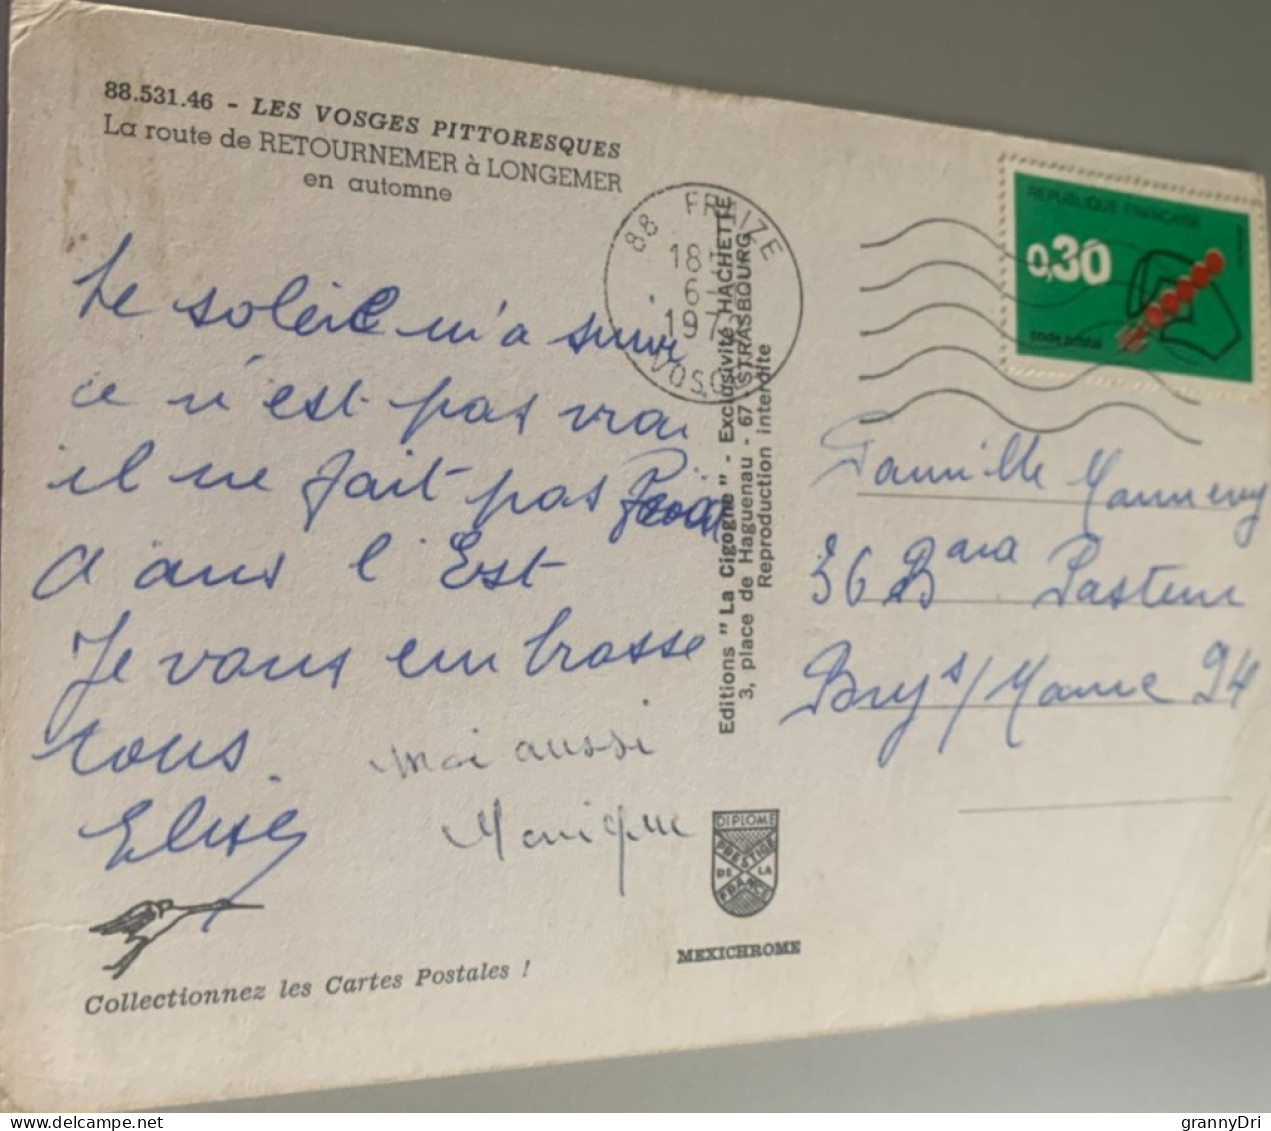 88.531.46 - LES VOSGES PITTORESQUES
La route de RETOURNEMER à LONGEMER
en automne
Le soleil m'a suivi
ce n'est pas vrai
il ne fait pas froid
d'ans l'Est
Je vous embrasse
tous.
Elise
moi aussi
Monique
Collectionnez les Cartes Postales !
88 FRAIZE
18
6
197
VOSGES
Editions "La Cigogne" - Exclusivité HACHETTE
3, place de Haguenau - 67 - STRASBOURG
Reproduction interdite
DIPLOME
PRESTIGE
DE LA
FRANCE
MEXICHROME
REPUBLIQUE FRANÇAISE
0,30
code postal
Famille
36 Bara Pasteur
Bry s/Marne 94
delcampe.net
grannyDri